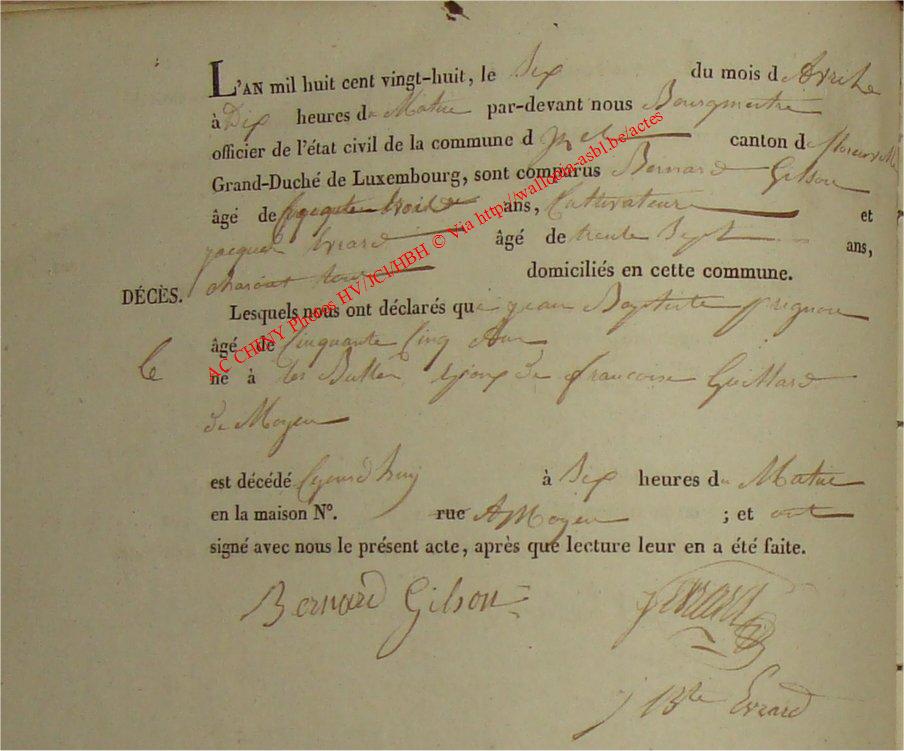 L'AN mil huit cent vingt-huit, le Six du mois d Avrile
à Dix heures du Matin par-devant nous Bourgmestre
officier de l'état civil de la commune d canton de florenville
Grand-Duché de Luxembourg, sont comparus Bernard Gilson
âgé de ans, Cultivateur et
jacques Evrard âgé de trente Sept ans,
domiciliés en cette commune.
DÉCÈS.
Lesquels nous ont déclarés que jean Baptiste prignon
âgé de Cinquante Cinq Ans
né à les Bulles Epoux de francoise Guillard
de Moyen
est décédé à Six heures du Matin
en la maison N°. rue A Moyen ; et ont
signé avec nous le présent acte, après que lecture leur en a été faite.
Bernard Gilson
J Evrard
J Bte Evrard
AC CHINY Photos HV/JCl/HBH © Via http://wallonia-asbl.be/actes